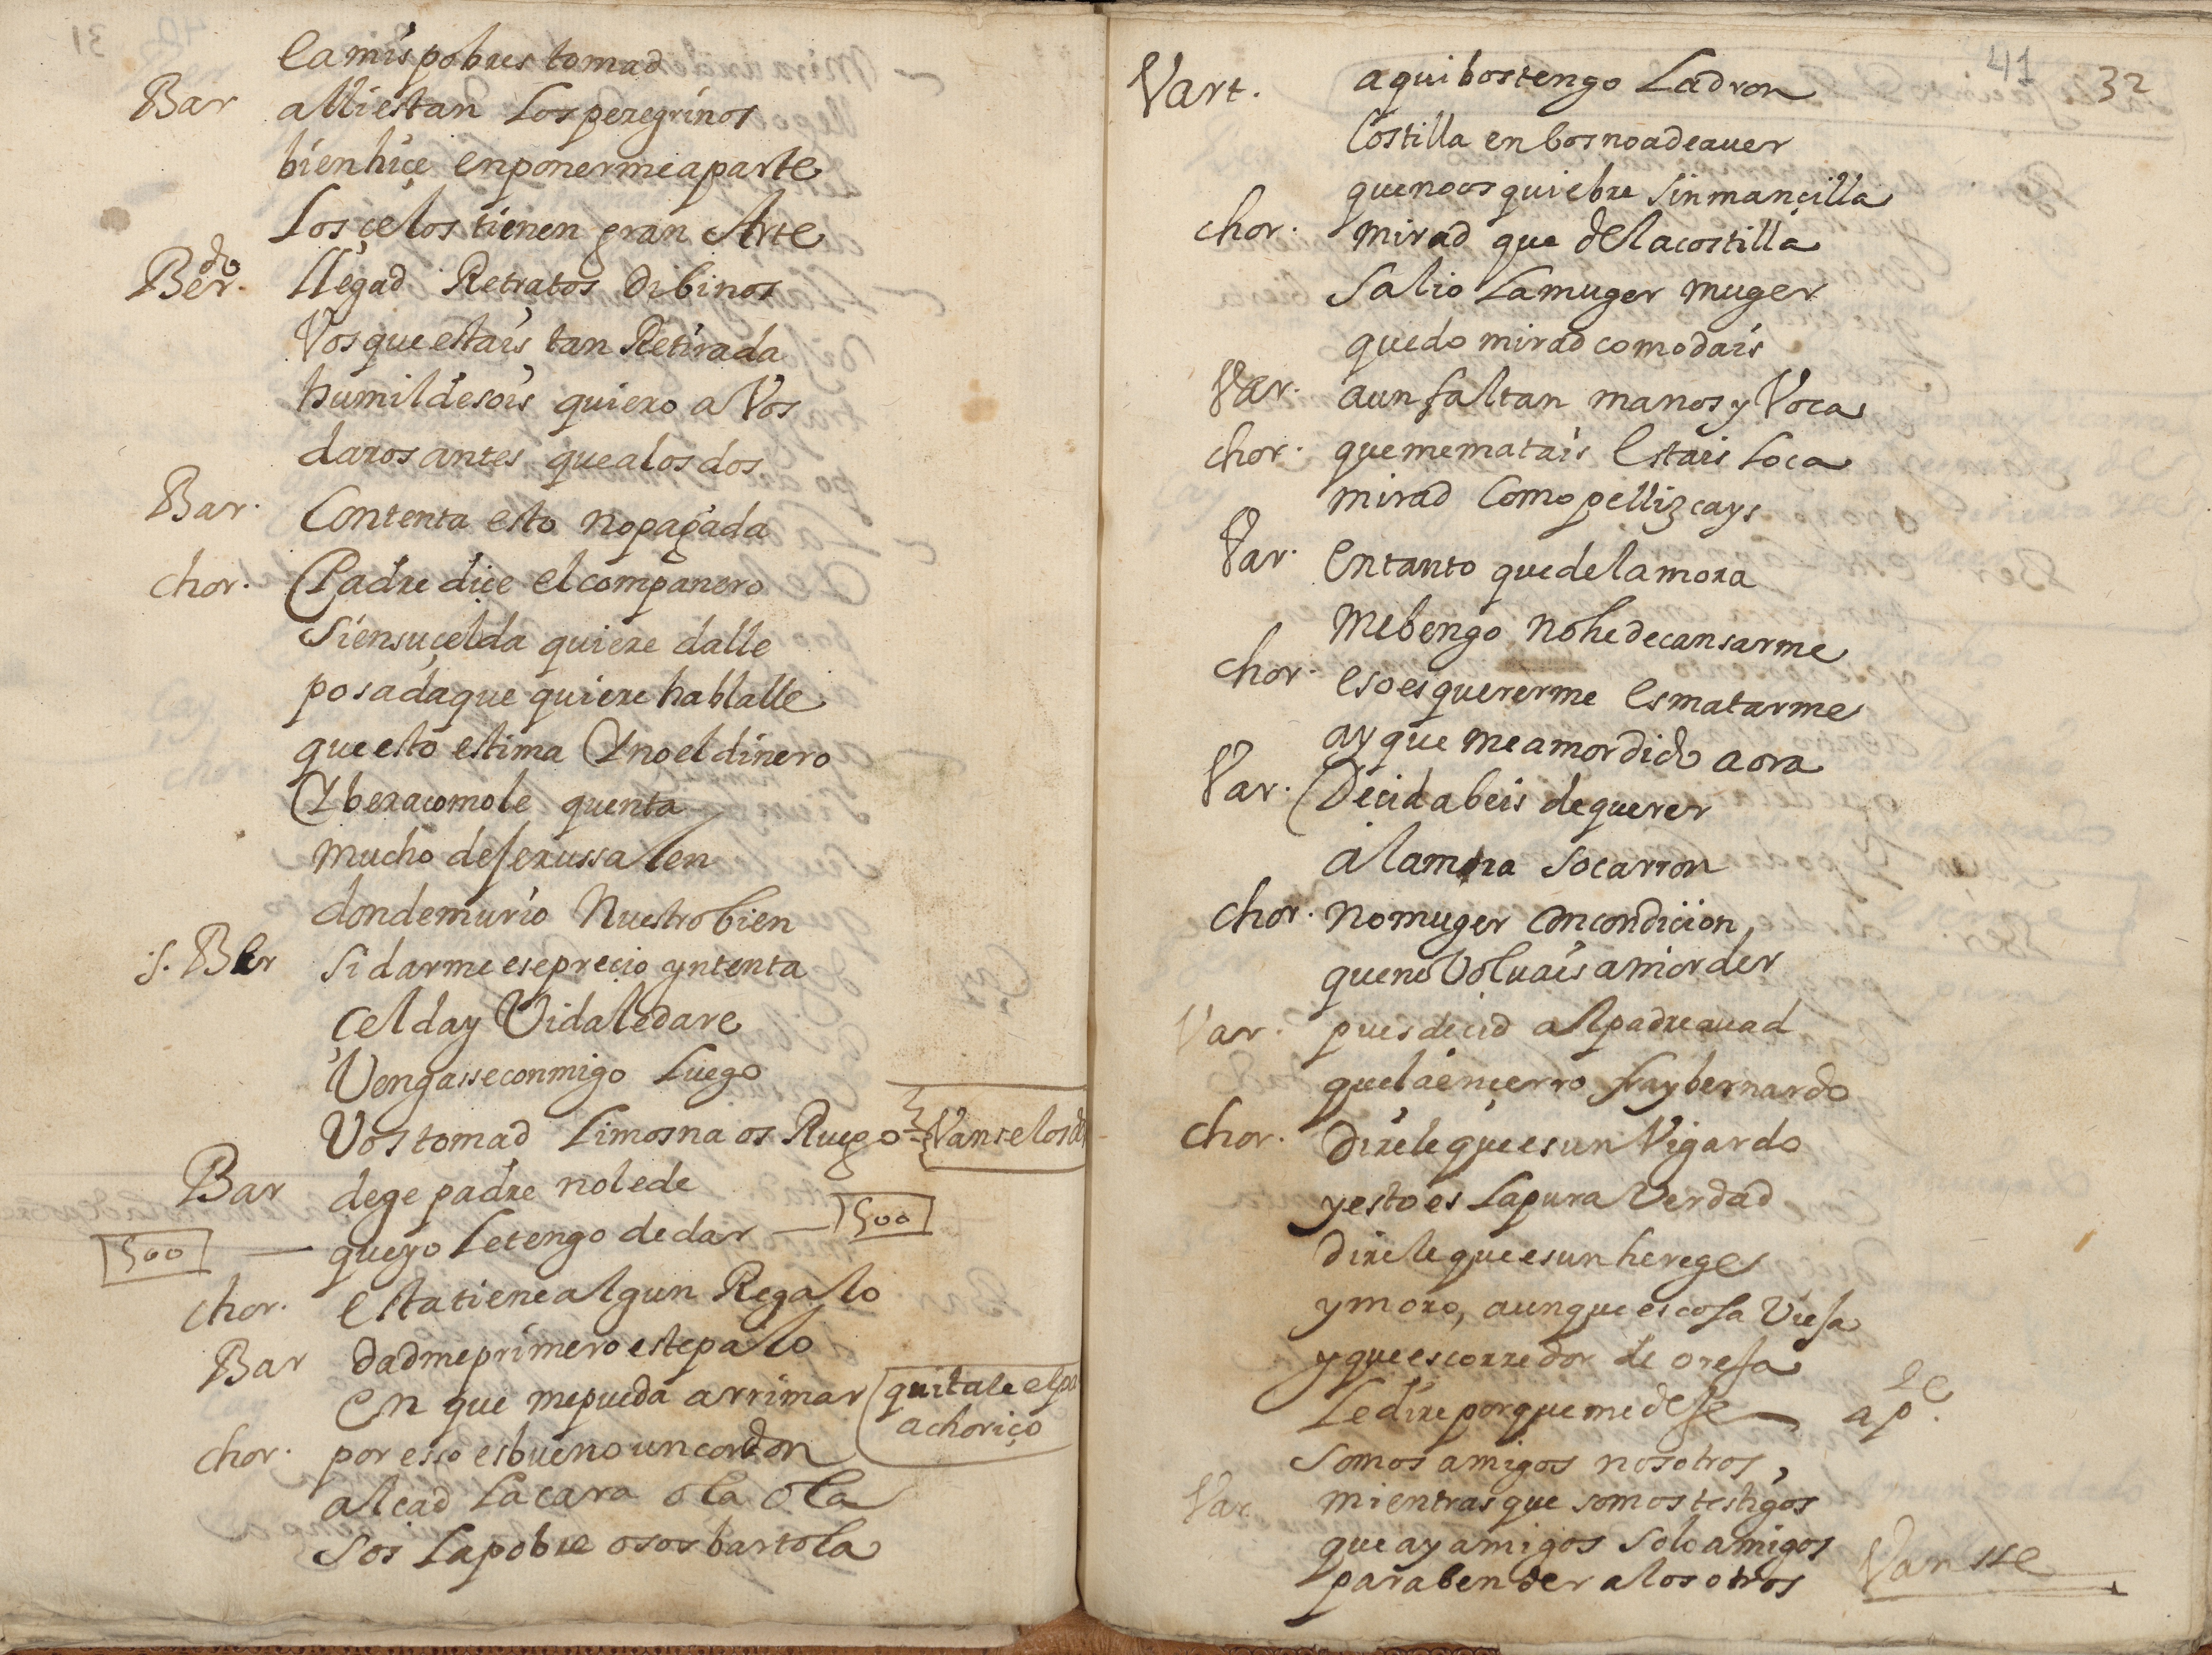 ea mis pobres tomad
Bar alli estan los peregrinos
bien hiçe en ponerme aparte
Los çelos tienen gran Arte
Berdo. llegad Retratos dibinos
Vos que estais tan Retirada
humilde sois quiero a Vos
daros antes que a los dos
Bar. Contenta esto no pagada
chor. Padre diçe el companero
Si en su çelda quiere dalle
posada que quiere hablalle
que esto estima Y no el dinero
Y bera como le quenta
mucho de Jerussalen
donde murio Nuestro bien
S. Ber Si darme ese precio yntenta
Çelda y Vida le dare
Vengasse conmigo Luego
Vos tomad Limosna os Ruego - Vanse los dos
Bar dege padre no le de
que yo Le tengo de dar — 500
500 —
chor. esta tiene algun Regalo
Bar dadme primero este palo
En que me pueda arrimar quitale el pa
a choriço
chor. por esso es bueno un cordon
alçad La cara ola ola
Sos La pobre o sos bartola
31
41 32
Vart. aqui bos tengo Ladron
Costilla en bos no a de auer
que no os quiebre Sin mançilla
chor. mirad que de la costilla
Salio La muger muger
quedo mirad como dais
Var. aun faltan manos y Voca
chor. que me matais Estais Loca
mirad Como pellizcays
Var. en tanto que de la mora
me bengo no he de cansarme
chor. eso es quererme es matarme
ay que me a mordido aora
Var. Decid abeis de querer
a la mora socarron
chor. no muger con condicion,
que no Voluais a morder
Var. pues decid al padre auad
que la ençerro fray bernardo
chor. direle que es un Vigardo
y esto es La pura Verdad
direle que es un herege
y moro, aunque es cosa Vieja
y que es corredor de oreja
Le dire porque me deje — ap.e
Somos amigos nosotros,
Var. mientras que somos testigos
que ay amigos Solo amigos
para bender a los otros Vansse